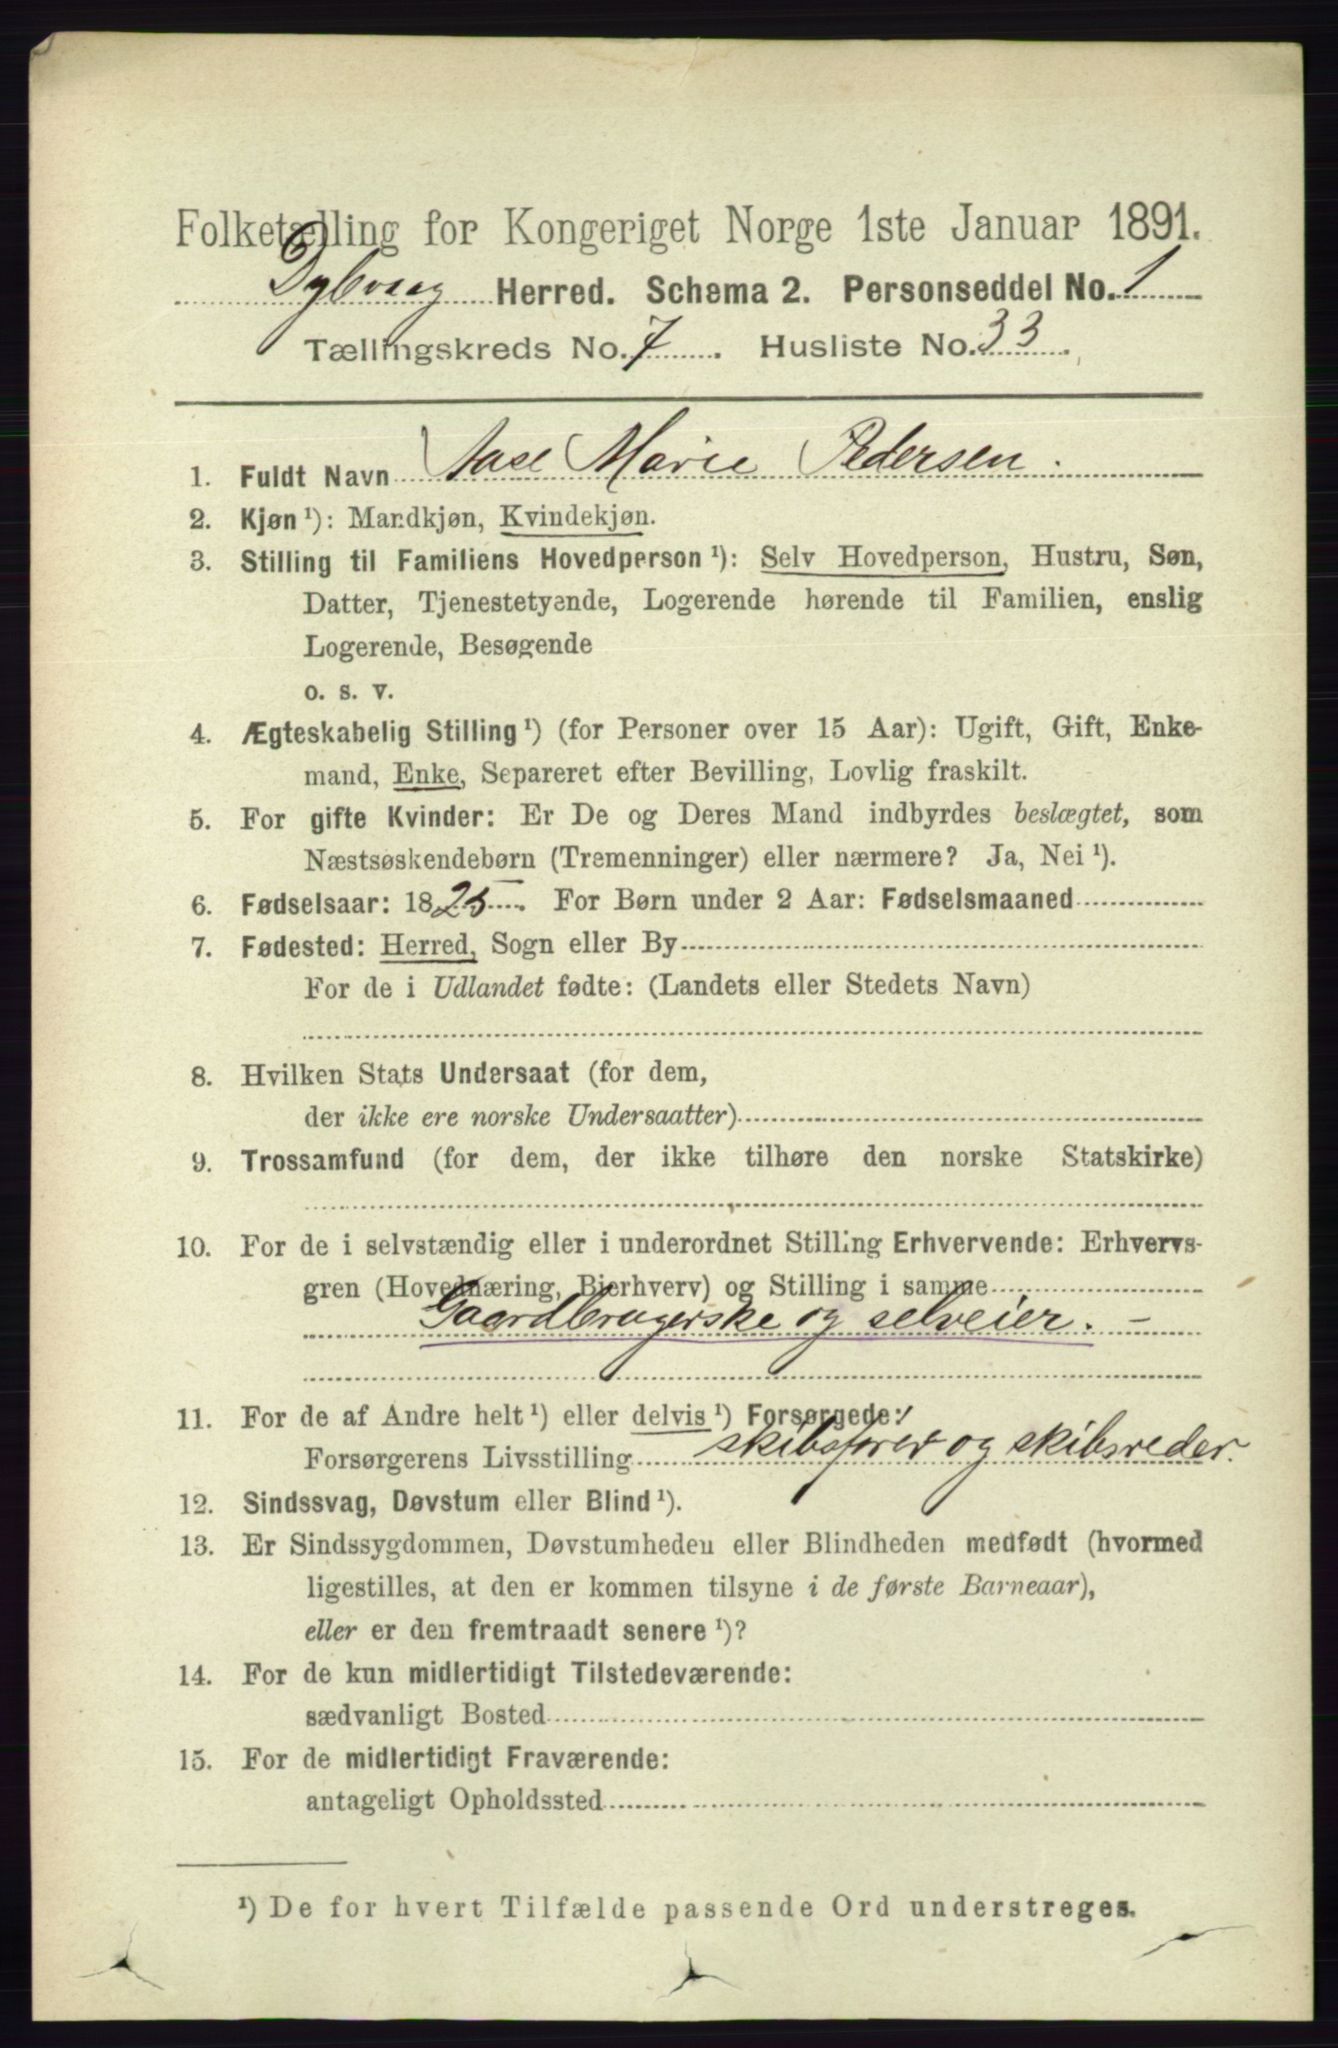 Folketælling for Kongeriget Norge 1ste Januar 1891.
Dybvaag Herred. Schema 2. Personseddel No. 1
Tællingskreds No. 7. Husliste No. 33.
1. Fuldt Navn Aase Marie Pedersen.
2. Kjøn ¹): Mandkjøn, Kvindekjøn.
3. Stilling til Familiens Hovedperson ¹): Selv Hovedperson, Hustru, Søn,
Datter, Tjenestetyende, Logerende hørende til Familien, enslig
Logerende, Besøgende
o. s. v.
4. Ægteskabelig Stilling ¹) (for Personer over 15 Aar): Ugift, Gift, Enke-
mand, Enke, Separeret efter Bevilling, Lovlig fraskilt.
5. For gifte Kvinder: Er De og Deres Mand indbyrdes beslægtet, som
Næstsøskendebørn (Tremenninger) eller nærmere? Ja, Nei ¹).
6. Fødselsaar: 1825. For Børn under 2 Aar: Fødselsmaaned
7. Fødested: Herred, Sogn eller By
For de i Udlandet fødte: (Landets eller Stedets Navn)
8. Hvilken Stats Undersaat (for dem,
der ikke ere norske Undersaatter)
9. Trossamfund (for dem, der ikke tilhøre den norske Statskirke)
10. For de i selvstændig eller i underordnet Stilling Erhvervende: Erhvervs-
gren (Hovednæring, Bierhverv) og Stilling i samme
Gaardbrugerske og selveier. –
11. For de af Andre helt ¹) eller delvis ¹) Forsørgede:
Forsørgerens Livsstilling skibsfører og skibsreder.
12. Sindssvag, Døvstum eller Blind ¹).
13. Er Sindssygdommen, Døvstumheden eller Blindheden medfødt (hvormed
ligestilles, at den er kommen tilsyne i de første Barneaar),
eller er den fremtraadt senere ¹)?
14. For de kun midlertidigt Tilstedeværende:
sædvanligt Bosted
15. For de midlertidigt Fraværende:
antageligt Opholdssted
¹) De for hvert Tilfælde passende Ord understreges.